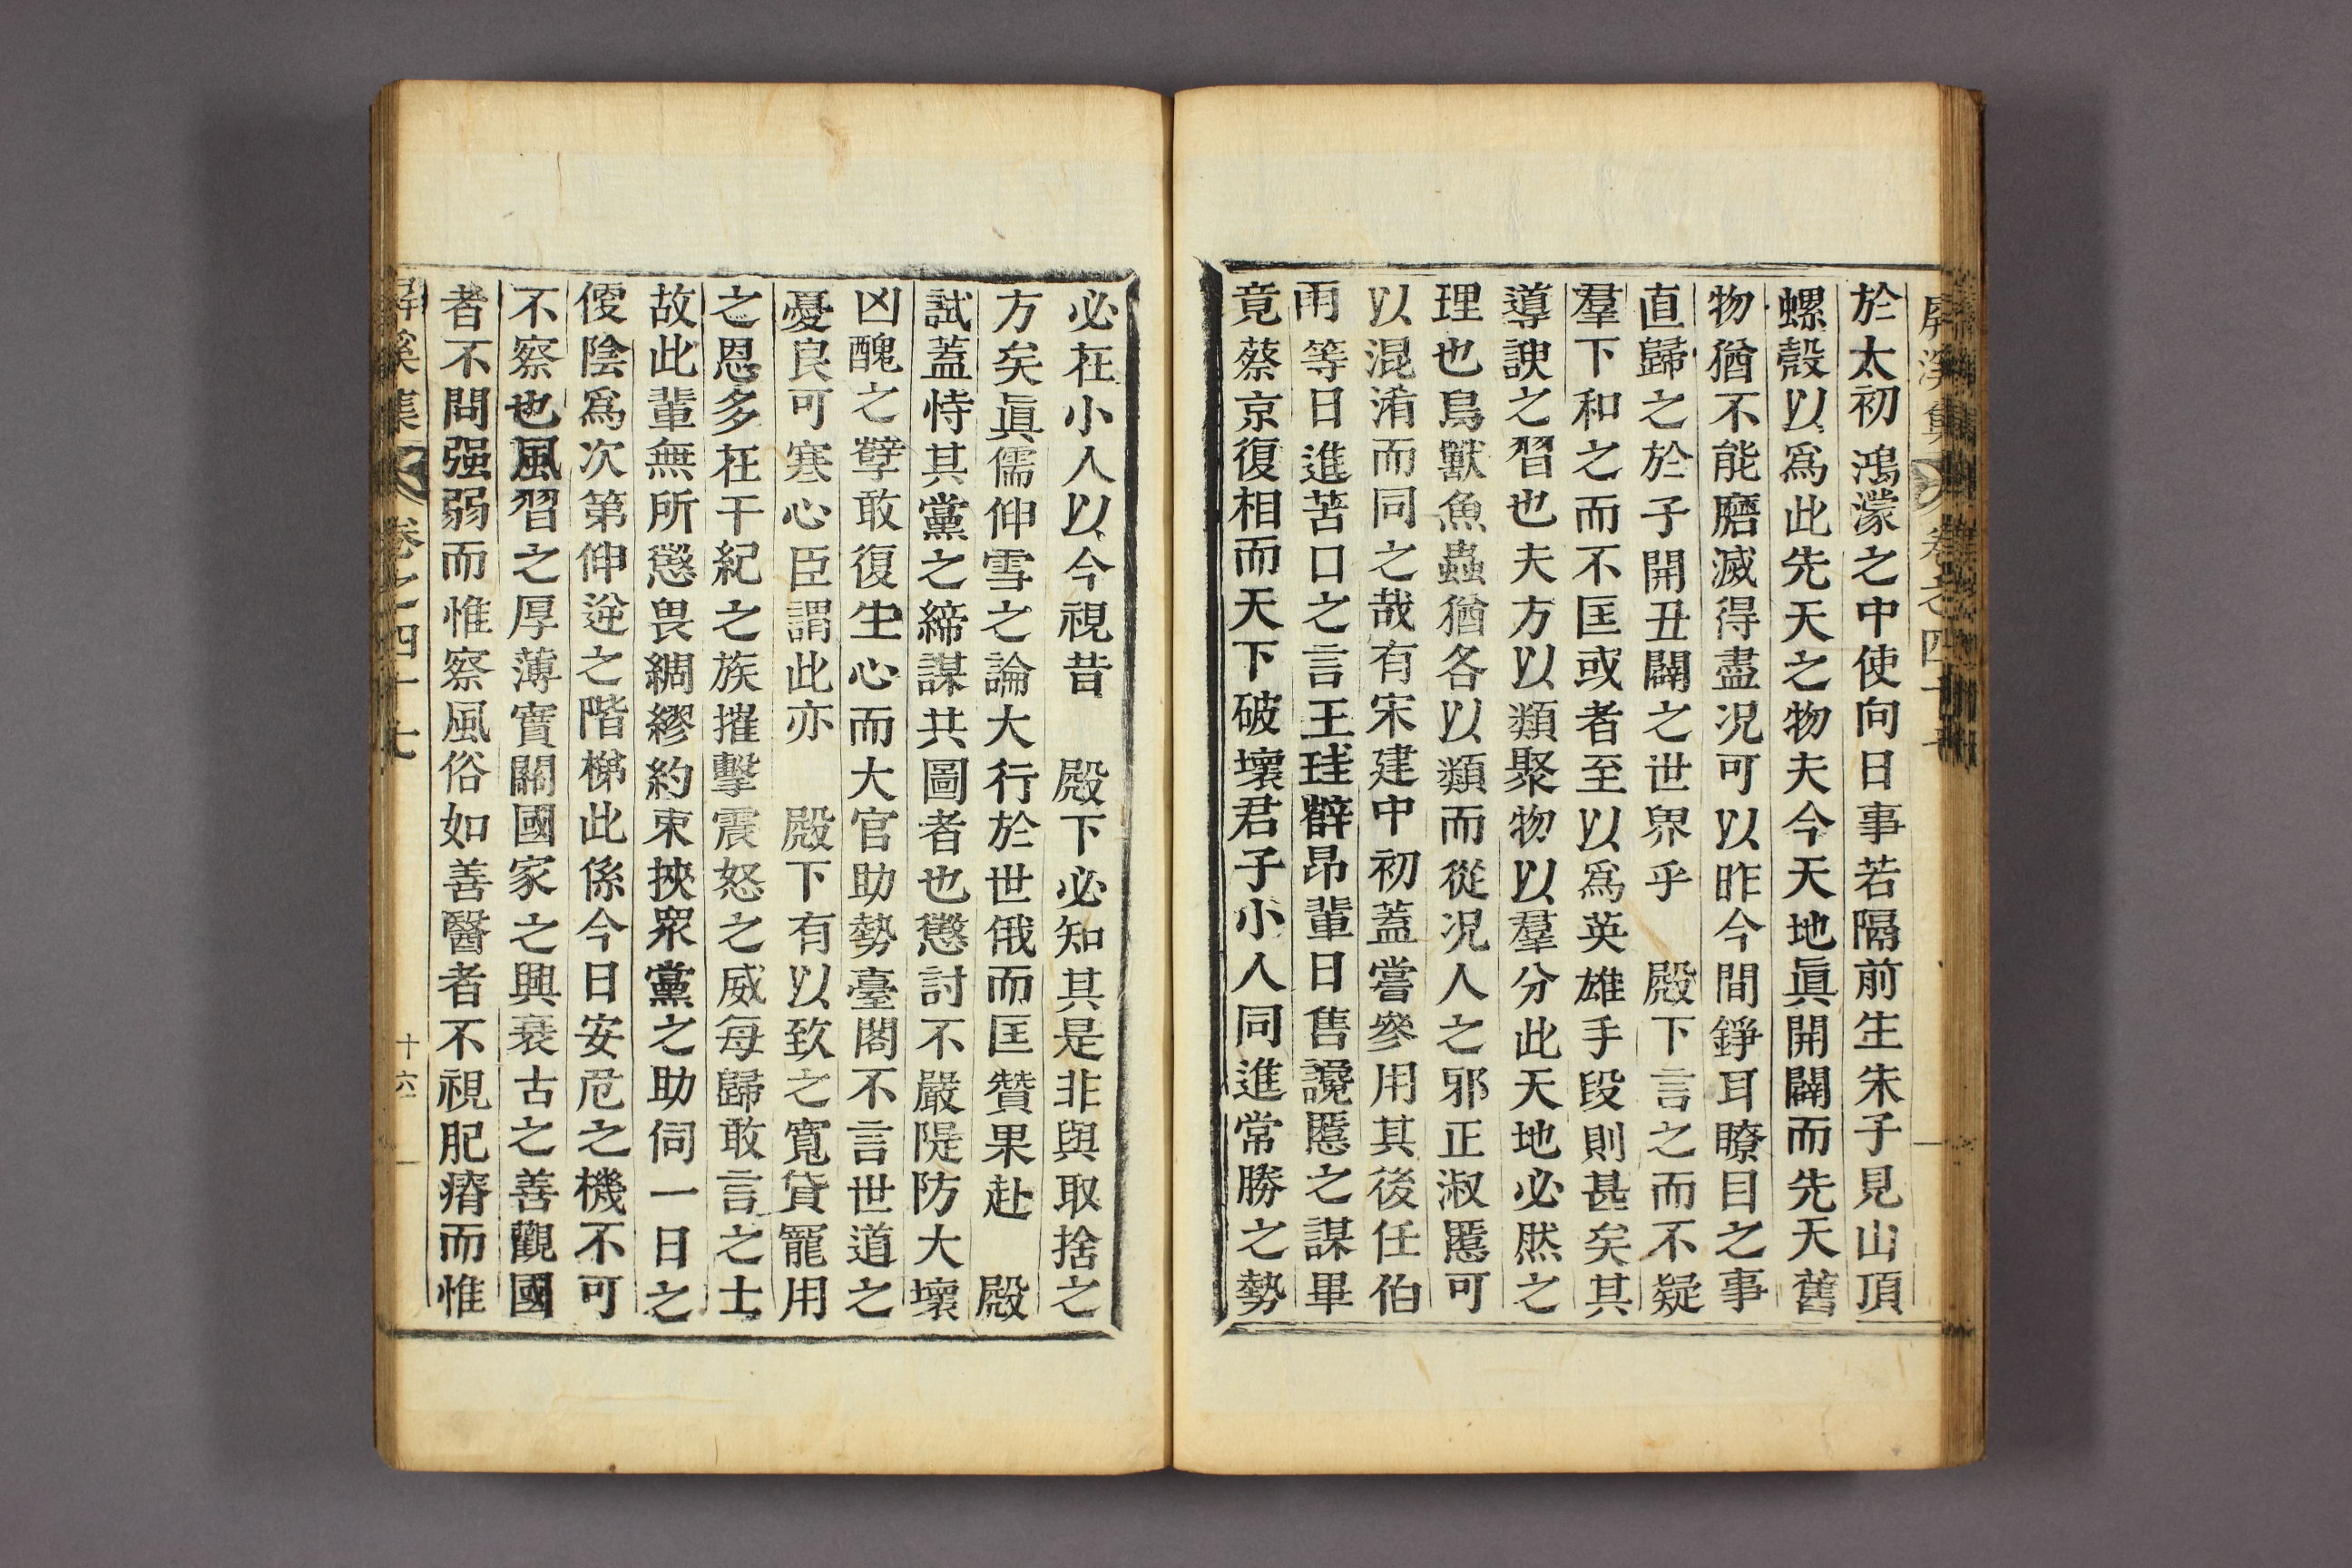 屛溪集 卷之四十七
於太初鴻濛之中使向日事若隔前生朱子見山頂
螺殼以爲此先天之物夫今天地眞開闢而先天舊
物猶不能磨滅得盡况可以昨今間錚耳瞭目之事
直歸之於子開丑闢之世界乎 殿下言之而不疑
羣下和之而不匡或者至以爲英雄手段則甚矣其
導諛之習也夫方以類聚物以羣分此天地必然之
理也鳥獸魚蟲猶各以類而從况人之邪正淑慝可
以混淆而同之哉有宋建中初蓋嘗參用其後任伯
雨等日進苦口之言王珪薛昂輩日售讒慝之謀畢
竟蔡京復相而天下破壞君子小人同進常勝之勢
必在小人以今視昔 殿下必知其是非與取捨之
方矣眞儒伸雪之論大行於世俄而匡贊果赴 殿
試蓋恃其黨之締謀共圖者也懲討不嚴隄防大壞
凶醜之孼敢復生心而大官助勢臺閣不言世道之
憂良可寒心臣謂此亦 殿下有以致之寬貸寵用
之恩多在干紀之族摧擊震怒之威每歸敢言之士
故此輩無所懲畏綢繆約束挾衆黨之助伺一日之
便陰爲次第伸逆之階梯此係今日安危之機不可
不察也風習之厚薄實關國家之興衰古之善觀國
者不問强弱而惟察風俗如善醫者不視肥瘠而惟
屛溪集 卷之四十七 十六